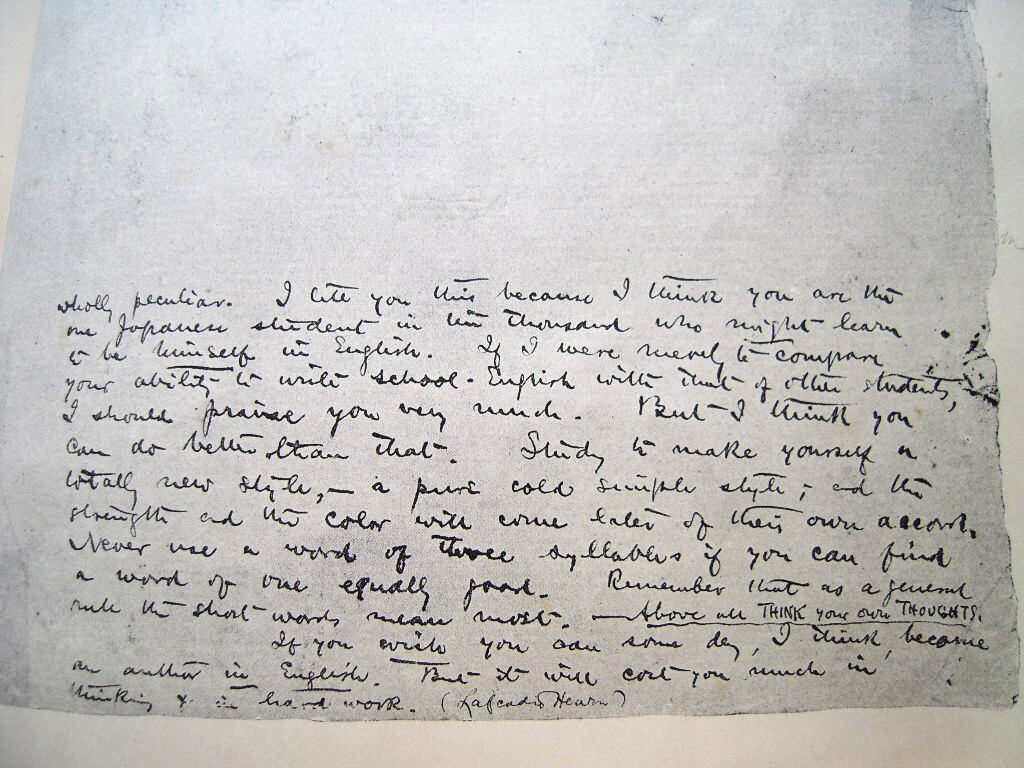 wholly peculiar. I tell you this because I think you are the
one Japanese student in ten thousand who might learn
to be himself in English. If I were merely to compare
your ability to write school-English with that of other students,
I should praise you very much. But I think you
can do better than that. Study to make yourself a
totally new style, — a pure cold simple style; and the
strength and the color will come later of their own accord.
Never use a word of three syllables if you can find
a word of one equally good. Remember that as a general
rule the short words mean most. — Above all THINK your own THOUGHTS.
If you wish you can some day, I think, become
an author in English. But it will cost you much in
thinking & in hard work. (Lafcadio Hearn)